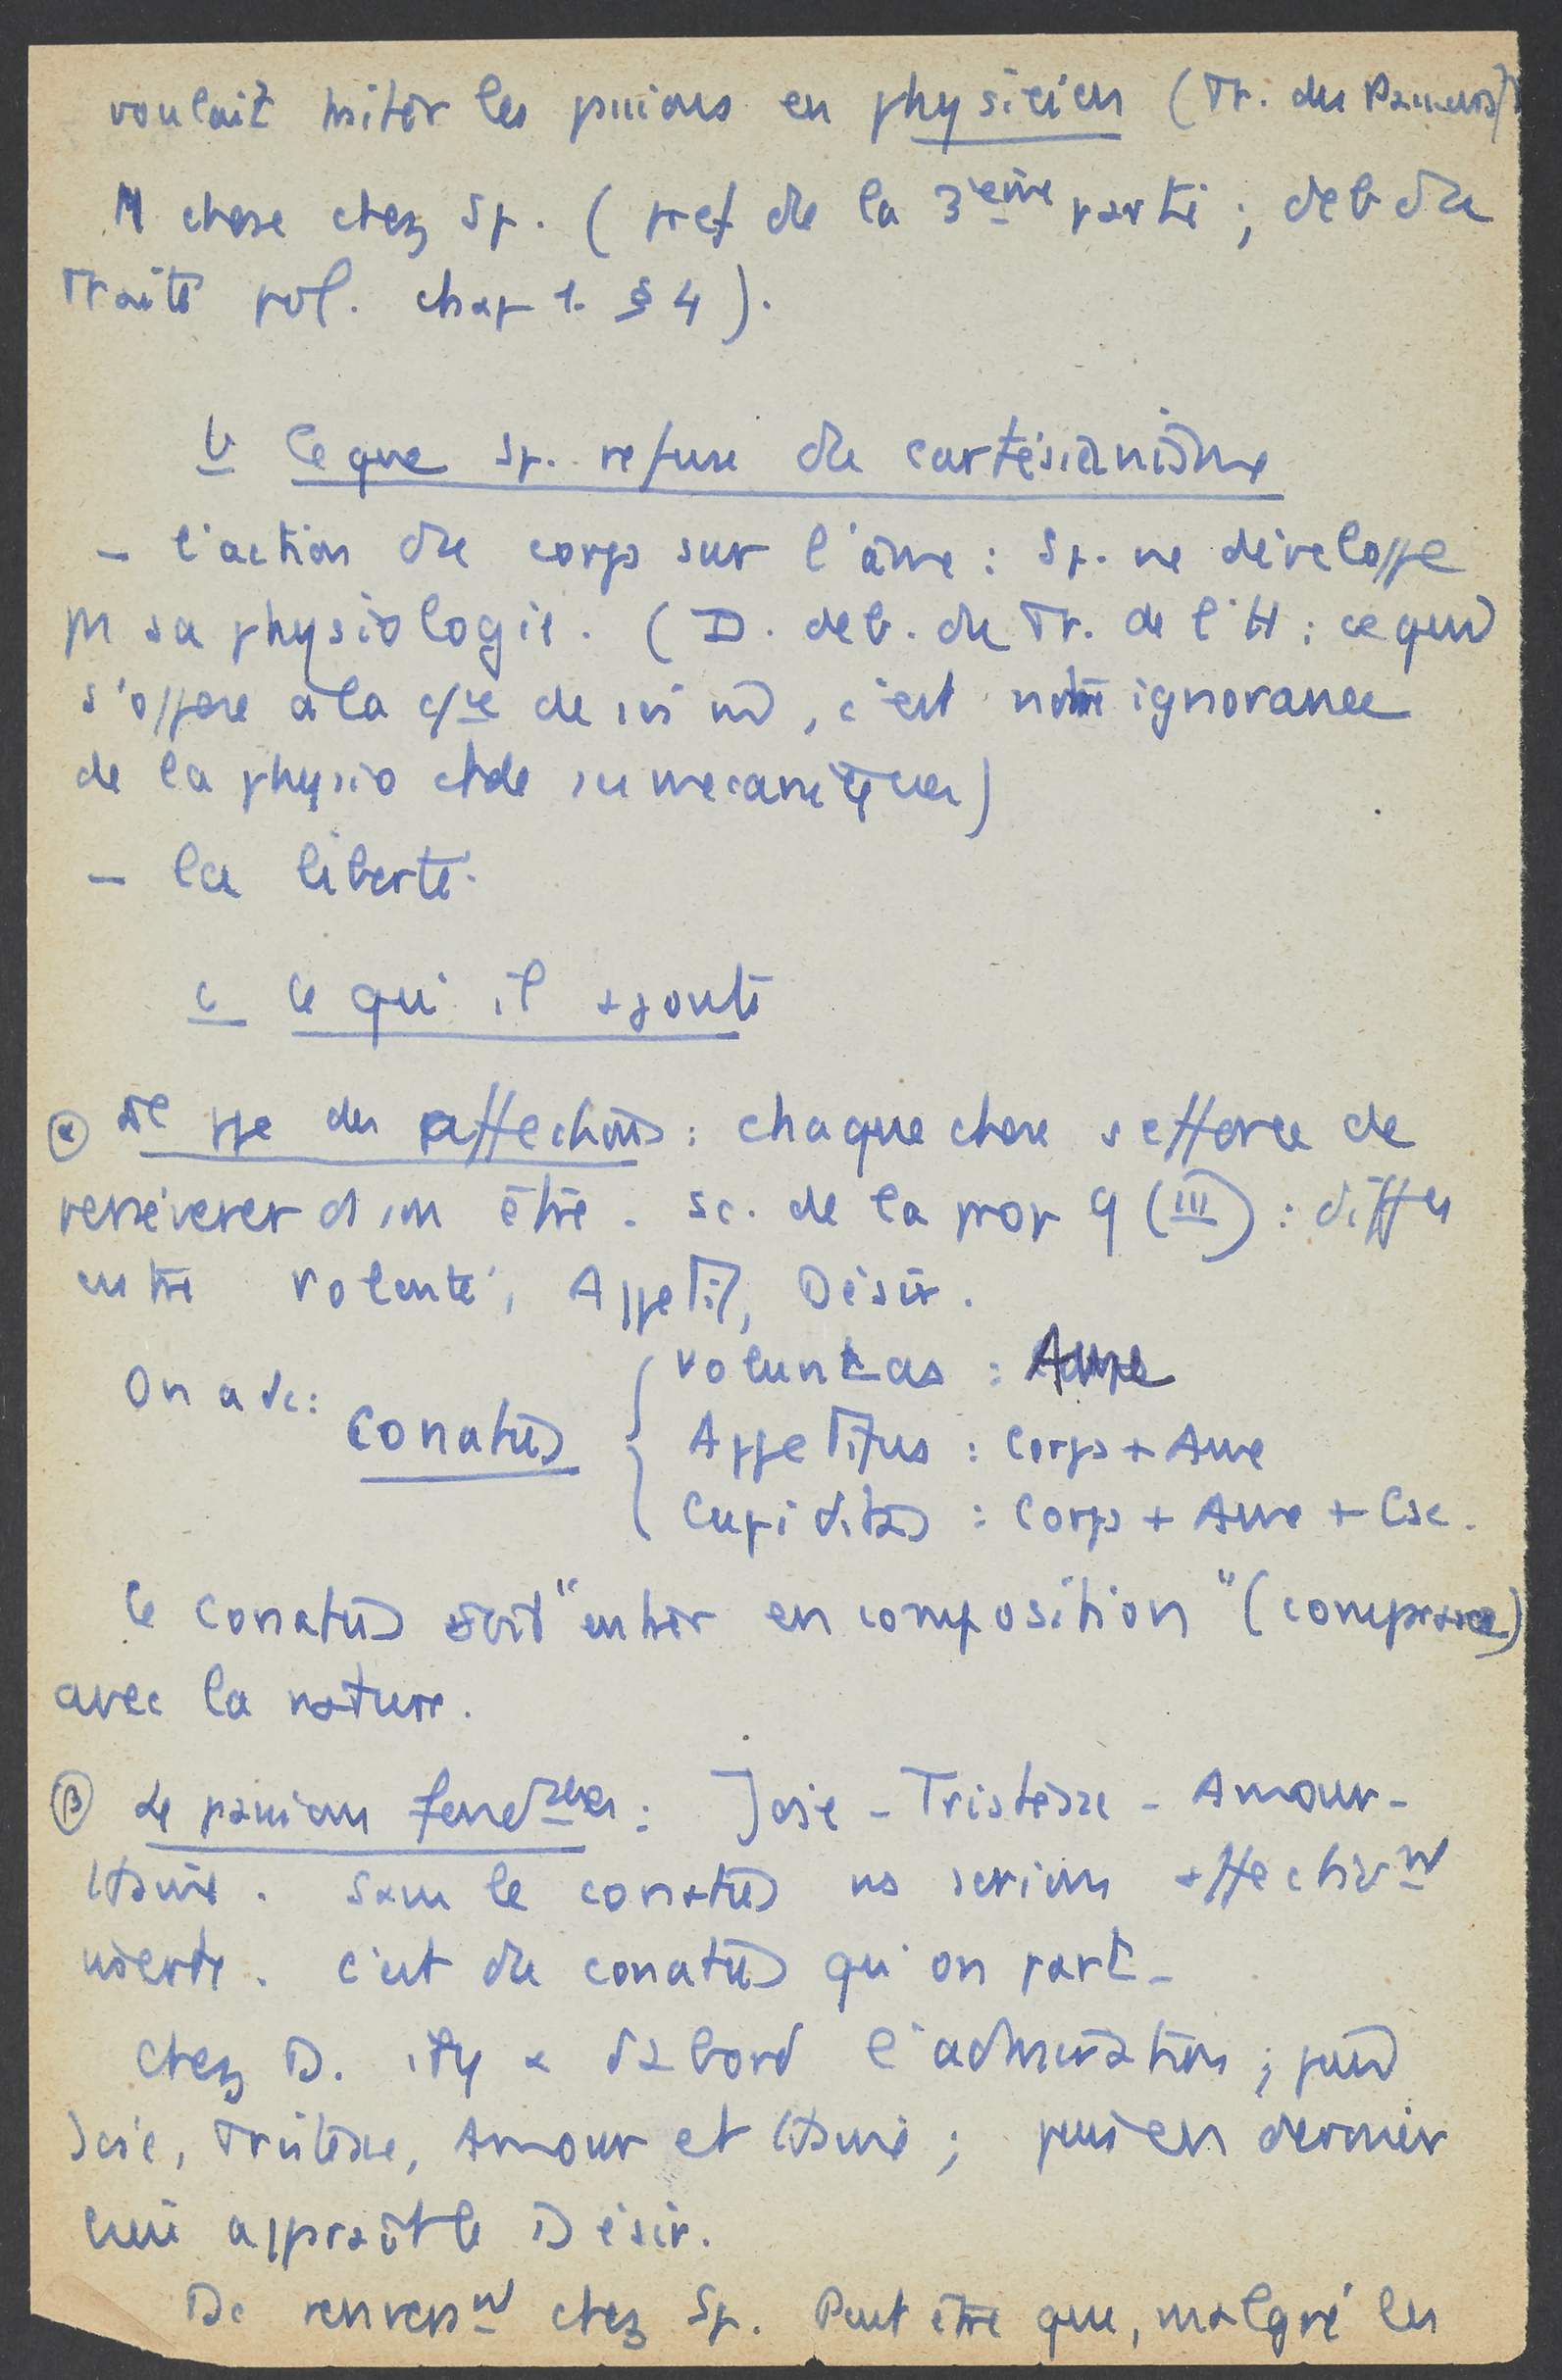 voulait traiter les passions en physicien (Tr. des Passions)
M chose chez Sp. (pref de la 3ième partie ; deb du
Traité pol. chap 1. § 4).
b Ce que Sp. refuse du cartésianisme
– l'action du corps sur l'âme : Sp. ne développe
pas sa physiologie. (D. deb. du Tr. de l'H : ce qui
s'oppose à la de , c'est notre ignorance
de la physio et de ses mécaniques)
– la liberté.
c Ce qu'il ajoute
α Le ppe des affections : chaque chose s'efforce de
persévérer ds son être. Sc. de la prop 9 (III) : diffces
entre Volonté, Appétit, Désir.
On a dc :
Conatus
Voluntas : Ame
Appetitus : Corps + Ame
Cupiditas : Corps + Ame + Csc.
Le conatus doit "entrer en composition" (comparare)
avec la nature.
β Les passions fondales : Joie – Tristesse – Amour –
Haine. Sans le conatus ns serions affectivt
inertes. C'est du conatus qu'on part –
Chez D. il y a d'abord l'admiration ; puis
Joie, Tristesse, Amour et Haine ; puis en dernier
lieu apparaît le Désir.
Dc renverst chez Sp. Peut être que, malgré les